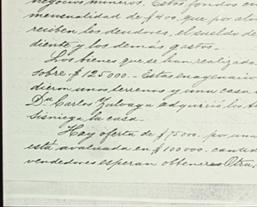 negocios mineros. Estos fondos en
mensualidad de $400. que por
reciben los deudores, el sueldo de
diente y los demás gastos.
Los bienes que se han realizado
sobre $125.000.- Estas enagenacio
dieron unos terrenos y una casa
Dn. Carlos Zuloaga adquirió los
la casa.
Hoy oferta de $75000. por una
está avaluada en $100000. cantid
vendedores esperan obtener. Otra,